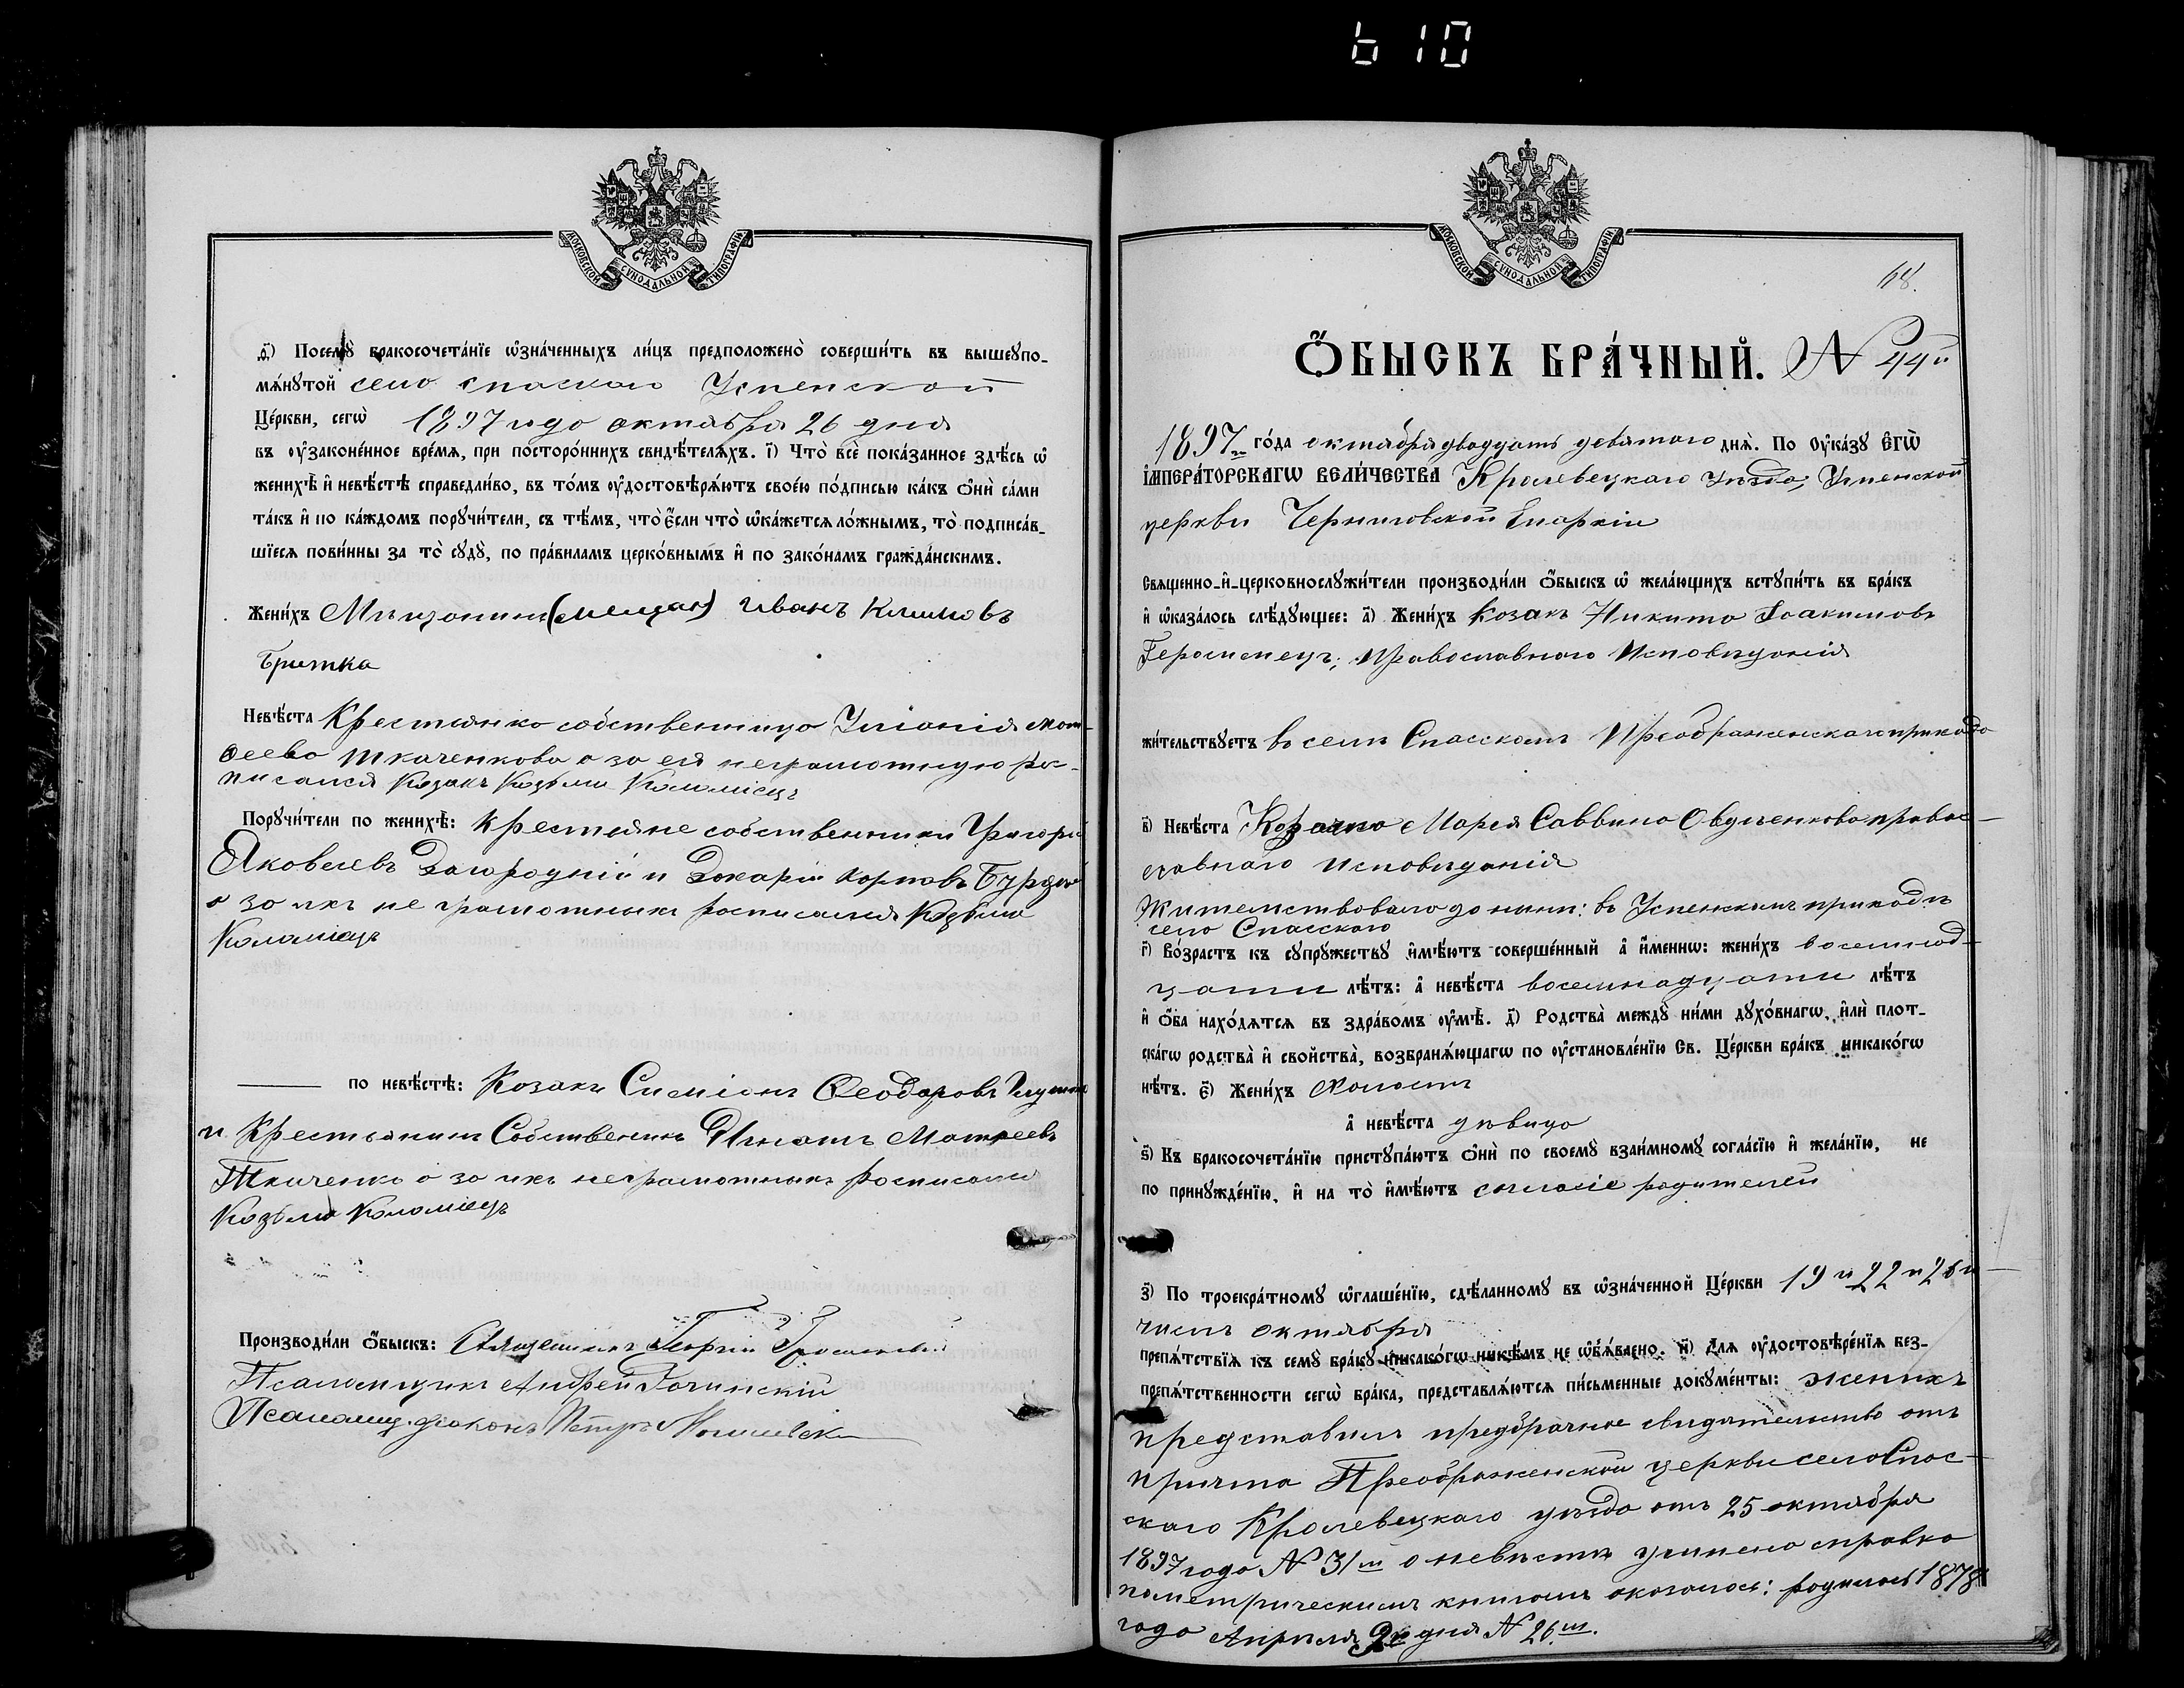 610
МОСКОВСКОЙ СУНОДАЛЬНОЙ ТИПОГРАФІИ
ѳ҃) Посемꙋ̀ бракосочета́нїе ѡ҆зна́ченныхъ ли́цъ предположено̀ соверши́ть въ вышеꙋпо-
мѧ́нꙋтой села Спаскаго Успенской
Це́ркви, сегѡ̀ 1897 года октября 26 дня
въ ᲂу҆законе́нное вре́мѧ, при посторо́ннихъ свидѣ́телѧхъ. і҃) Что̀ всѐ пока́занное здѣ́сь ѡ҆
женихѣ̀ и҆ невѣ́стѣ справедли́во, въ то́мъ ᲂу҆достовѣрѧ́ютъ свое́ю по́дписью ка́къ ѻ҆нѝ са́ми
та́къ и҆ по ка́ждомъ порꙋчи́тели, съ тѣ́мъ, что̀ є҆́сли что̀ ѡ҆ка́жется ло́жнымъ, то̀ подписа́в-
шїеся пови́нны за то̀ сꙋдꙋ̀, по пра́виламъ церко́внымъ и҆ по зако́намъ гражда́нскимъ.
Жени́хъ Мѣщанинъ (мещан) Иванъ Климовъ
Бритка
Невѣ́ста Крестьянка собственница Уліанія Мат-
ѳеева Ткаченкова а за ея неграмотную рос-
писался Козакъ Козьма Коломіецъ
Порꙋчи́тели по женихѣ̀: Крестьяне собственники Григорій
Яковлевъ Загородній и Захарій Карповъ
а за ихъ не грамотныхъ росписался Козьма
Коломіецъ
по невѣ́стѣ: Козакъ Симіонъ Ѳеодоровъ
и Крестьянинъ Собственикъ Игнатъ Матвеевъ
Ткаченко а за ихъ неграмотныхъ росписался
Козьма Коломіецъ
Производи́ли ѻ҆́быскъ: Священникъ Георгій
Псаломщикъ Андрей
Псаломщ. діаконъ Петръ
МОСКОВСКОЙ СУНОДАЛЬНОЙ ТИПОГРАФІИ
68.
Ѻ҆́БЫСКЪ БРА́ЧНЫЙ. N 44й
1897 го́да октября двадцать девятаго днѧ̀. По ᲂу҆ка́зꙋ є҆гѡ̀
і҆мпера́торскагѡ вели́чества Кролевецкаго уѣзда, Успенской
церкви Черниговской Епархіи
Свѧще́нно-и҆-церковнослꙋжи́тели производи́ли ѻ҆́быскъ ѡ҆ жела́ющихъ встꙋпи́ть въ бра́къ
и҆ ѡ҆каза́лось слѣ́дꙋющее: а҃) Жени́хъ Козакъ Никита Іоакимовъ
Православнаго Исповѣданія
жи́тельствꙋетъ въ селѣ Спасскомъ Преображенскаго прихода
в҃) Невѣ́ста Козачка Марія Саввина Овдѣенкова право-
славнаго исповѣданія
Жительствовала до нынѣ: въ Успенскомъ приходѣ
села Спасскаго
г҃) Во́зрастъ къ сꙋпрꙋ́жествꙋ и҆мѣ́ютъ соверше́нный а҆ и҆́меннѡ: жени́хъ восемнад-
цати лѣ́тъ: а҆ невѣ́ста восемнадцати лѣ́тъ
и҆ ѻ҆́ба нахо́дѧтсѧ въ здра́вомъ ᲂу҆мѣ̀. д҃) Родства̀ междꙋ̀ ни́ми дꙋхо́внагѡ, и҆лѝ плот-
ска́гѡ родства̀ и҆ свойства̀, возбранѧ́ющагѡ по ᲂу҆становле́нїю Св. Це́ркви бра́къ никако́гѡ
нѣ́тъ. є҃) Жени́хъ холостъ
а҆ невѣ́ста дѣвица
ѕ҃) Къ бракосочета́нїю пристꙋпа́ютъ ѻ҆нѝ по своемꙋ̀ взаи́мномꙋ согла́сїю и҆ жела́нїю, не
по принꙋжде́нїю, и҆ на то̀ и҆мѣ́ютъ согласіе родителей
з҃) По троекра́тномꙋ ѡ҆глаше́нїю, сдѣ́ланномꙋ въ ѡ҆зна́ченной Це́ркви 19 и 22 и 26 и
числъ октября
препѧ́тствїѧ къ семꙋ̀ бра́кꙋ никако́гѡ никѣ́мъ не ѡ҆б̾ѧ́влено. и҃) Длѧ ᲂу҆достовѣре́нїѧ без-
препѧ́тственности сегѡ̀ бра́ка, представлѧ́ютсѧ пи́сьменные докꙋме́нты: женихъ
представилъ предбрачное свидѣтельство отъ
причта Преображенской церкви села Спас-
скаго Кролевецкаго уѣзда отъ 25 октября
1897 года N 31м о невѣстѣ учинена справка
по метрическимъ книгамъ оказалось: родилась 1878
года Апрѣля 9го дня N 26м.